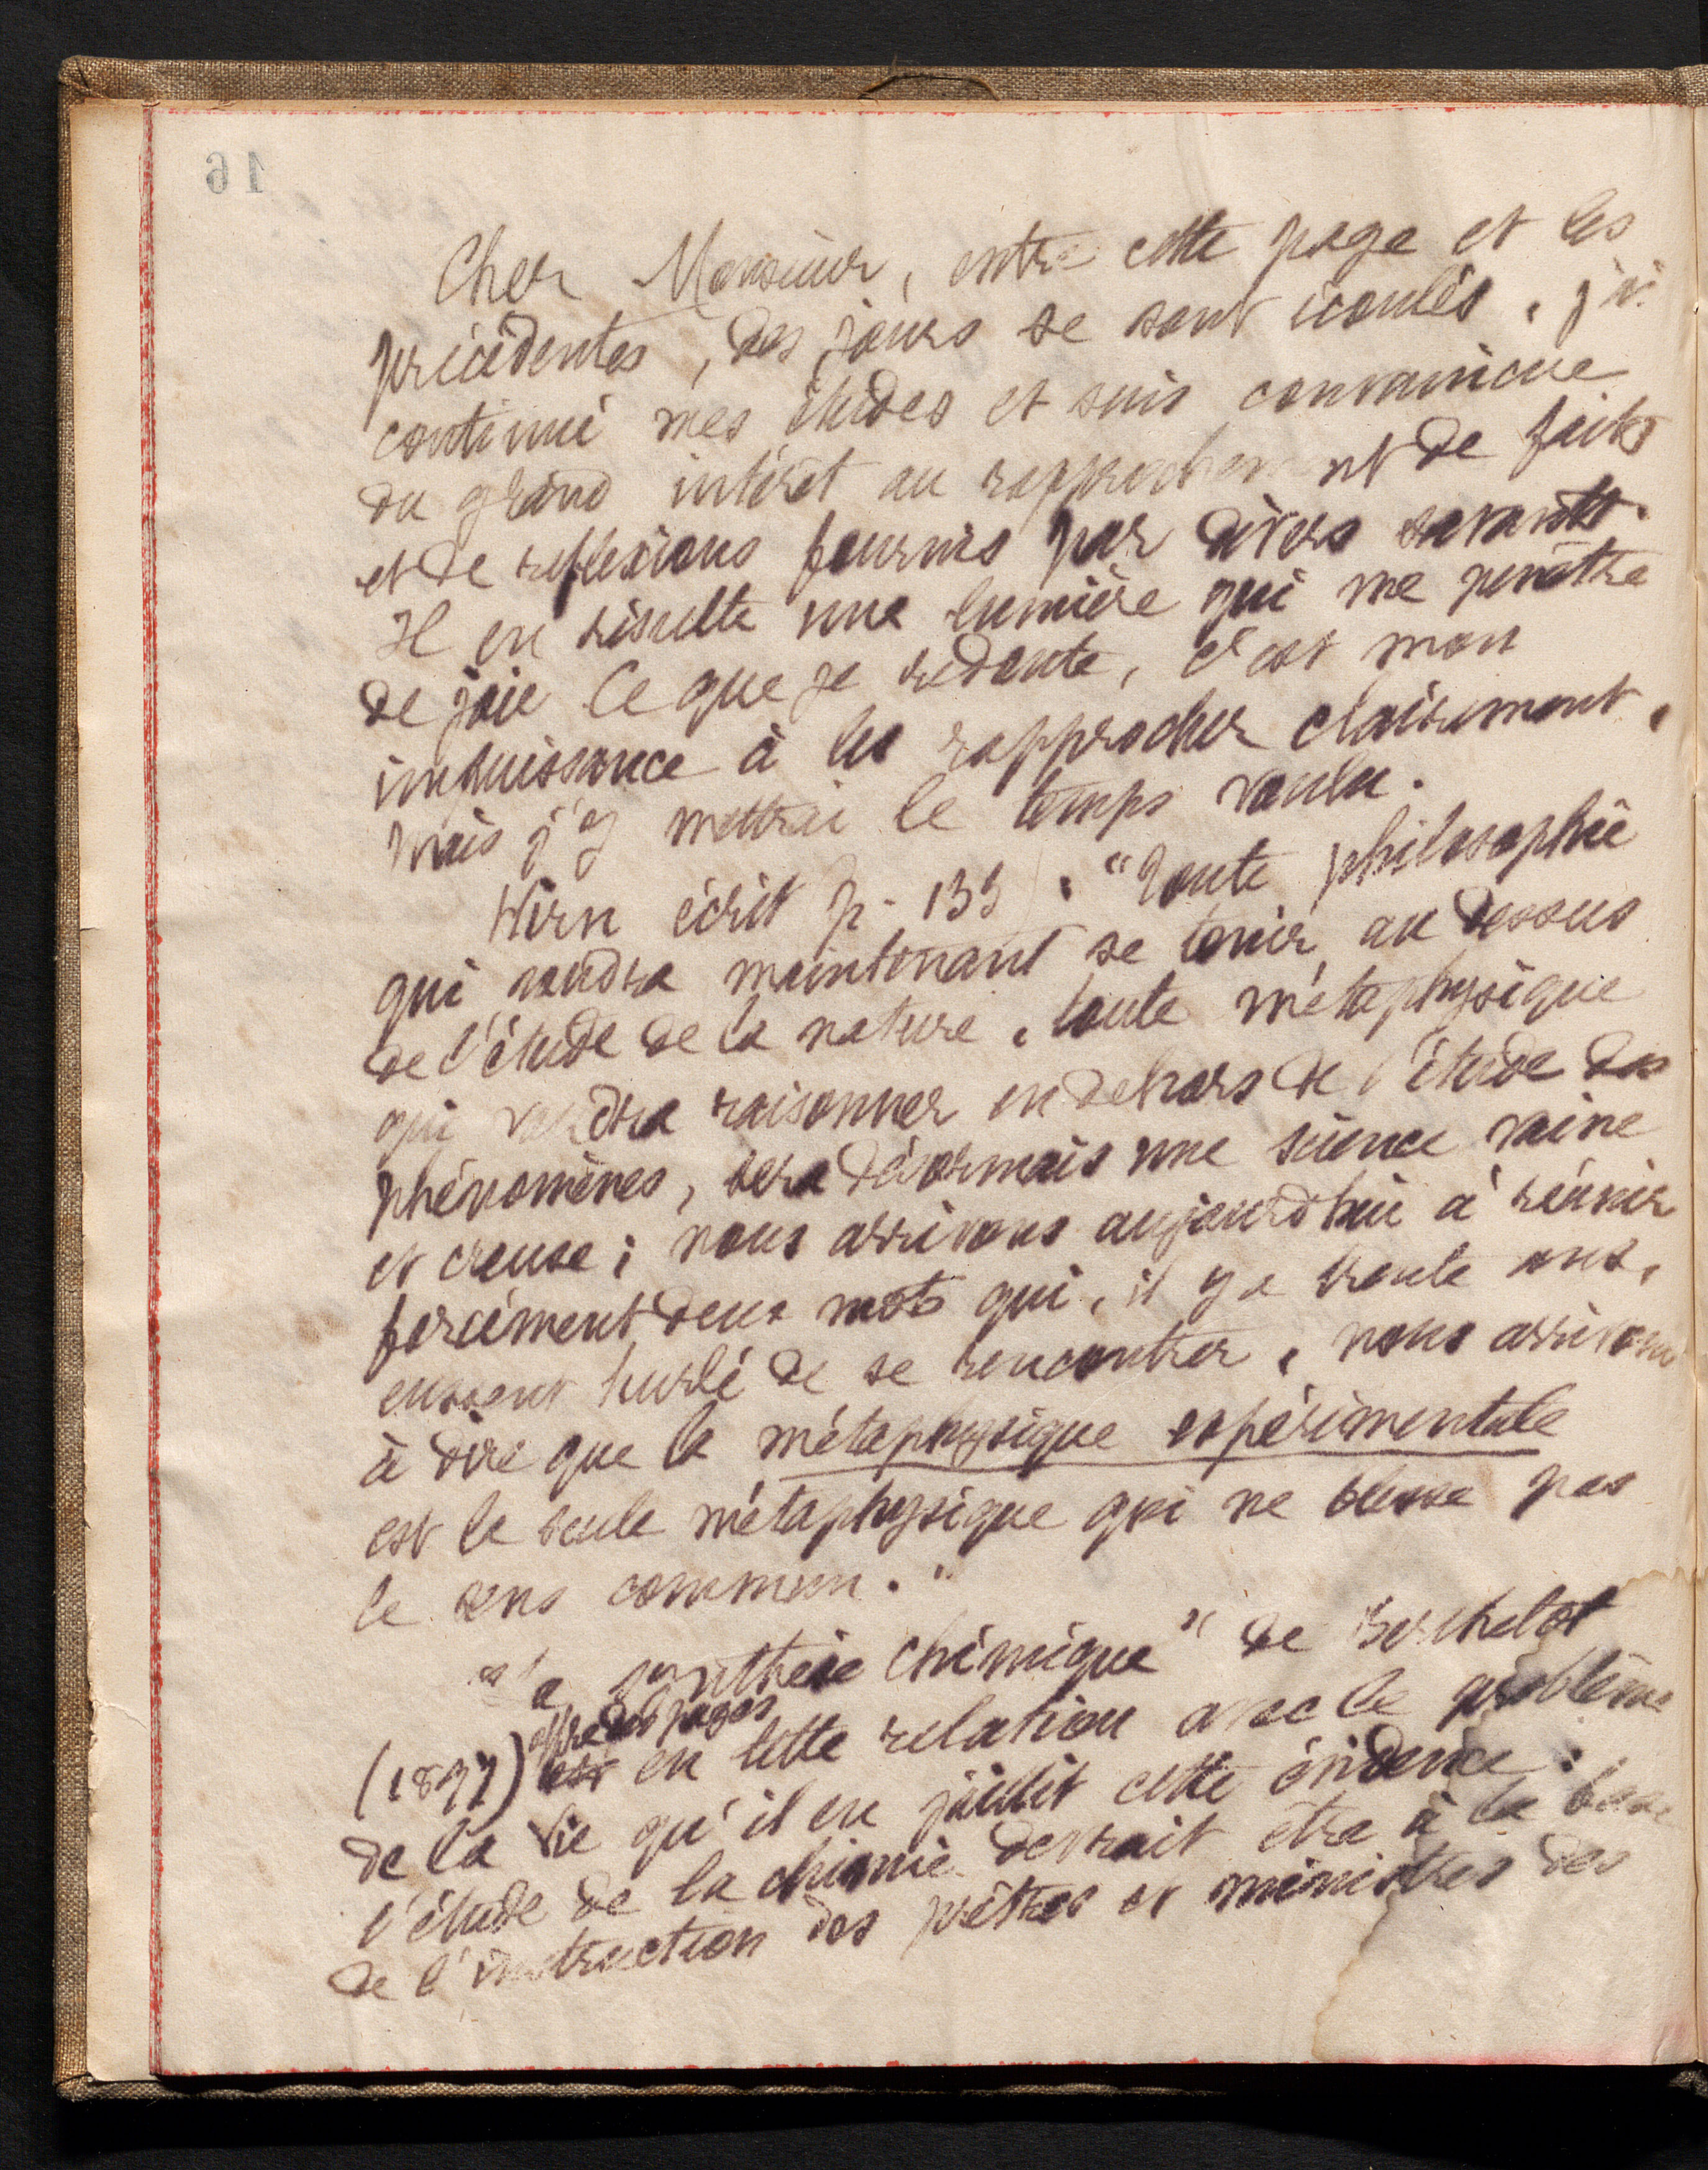 16
Cher Monsieur, entre cette page et les
précédentes, des jours se sont écoulés, j'ai
continué mes études et suis convaincue
du grand intérêt au rapprochement de faits
et de reflexions fournis par divers savants.
Il en résulte une lumière qui me penètre
de joie Ce que je redoute, c'est mon
impuissance à les rapprocher clairement,
mais j'y mettrai le temps voulu.
Hirn écrit p. 135 : "Toute philosophie
qui voudra maintenant se tenir au dessus
de l'étude de la nature, toute métaphysique
qui voudra raisonner en dehors de l'étude des
phénomènes, sera désormais une science vaine
et creuse ; nous arrivons aujourd'hui à réunir
forcément deux mots qui, il y a trente ans,
eussent hurlé de se rencontrer, nous arrivons
à dire que la métaphysique expérimentale
est la seule métaphysique qui ne blesse pas
le sens commun."
"La synthèse chimique" de Berthelot
offre des pages
(1897) est en telle relation avec le problème
de la vie qu'il en jaillit cette évidence :
l'étude de la chimie devrait être à la base
de l'instruction des prêtres et ministres des